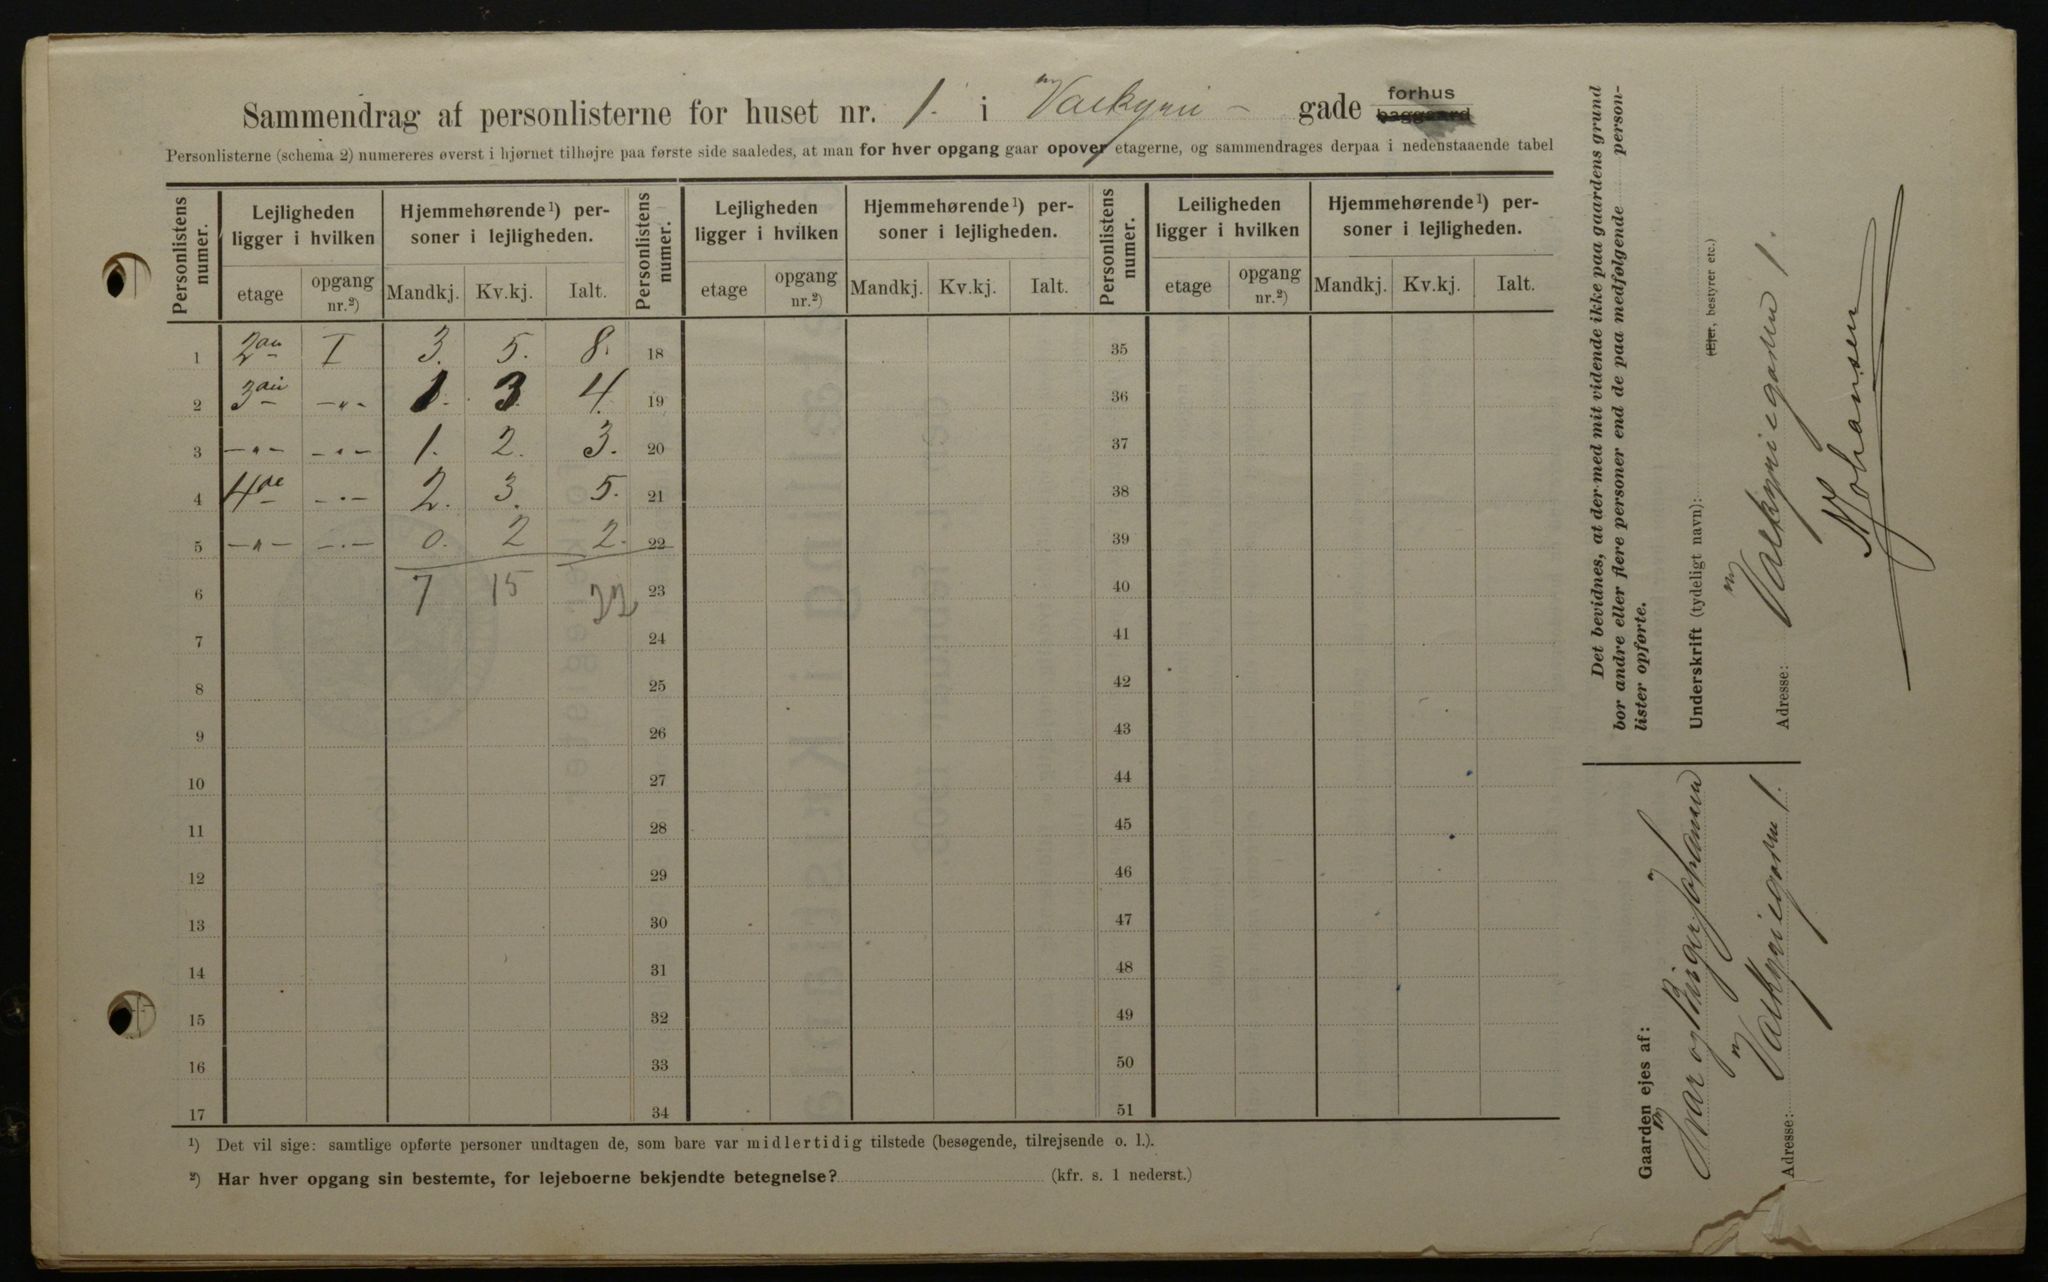 Sammendrag af personlisterne for huset nr. 1. i Valkyrie - gade forhus baggaard
Personlisterne (schema 2) numereres øverst i hjørnet tilhøjre paa første side saaledes, at man for hver opgang gaar opover etagerne, og sammendrages derpaa i nedenstaaende tabel
Personlistens numer. Lejligheden ligger i hvilken Hjemmehørende¹) personer i lejligheden. Personlistens numer. Lejligheden ligger i hvilken Hjemmehørende¹) personer i lejligheden. Personlistens numer. Leiligheden ligger i hvilken Hjemmehørende¹) personer i lejligheden.
etage opgang nr.²) Mandkj. Kv.kj. Ialt. etage opgang nr.²) Mandkj. Kv.kj. Ialt. etage opgang nr.²) Mandkj. Kv.kj. Ialt.
1 2 I 3. 5. 8. 18 35
2 3 -"- 1. 3. 4. 19 36
3 -"- -"- 1. 2. 3. 20 37
4 4de -"- 2. 3. 5. 21 38
5 -"- -"- 0. 2 2. 22 39
6 7 15 22 23 40
7 24 41
8 25 42
9 26 43
10 27 44
11 28 45
12 29 46
13 30 47
14 31 48
15 32 49
16 33 50
17 34 51
¹) Det vil sige: samtlige opførte personer undtagen de, som bare var midlertidig tilstede (besøgende, tilrejsende o. l.).
²) Har hver opgang sin bestemte, for lejeboerne bekjendte betegnelse? (kfr. s. 1 nederst.)
Det bevidnes, at der med mit vidende ikke paa gaardens grund
bor andre eller flere personer end de paa medfølgende person-
lister opførte.
Underskrift (tydeligt navn):
(Ejer, bestyrer etc.)
Adresse: Valkyriegaden 1.
Johansen
Gaarden ejes af:
Ivar og Birger Johansen
Adresse: Valkyriegaden 1.